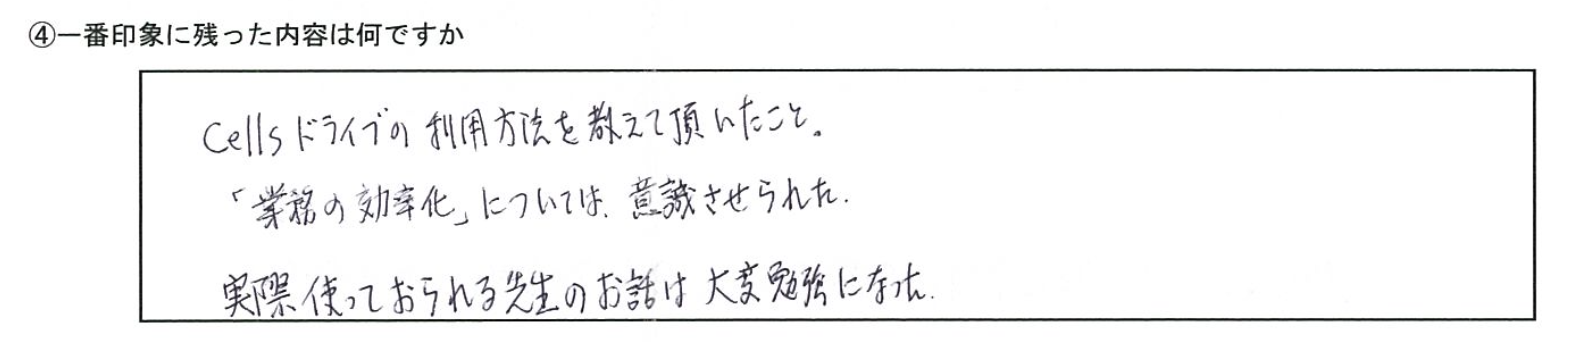 ④一番印象に残った内容は何ですか
Cellsドライブの利用方法を教えて頂いたこと。
「業務の効率化」については、意識させられた.
実際使っておられる先生のお話は大変勉強になった.